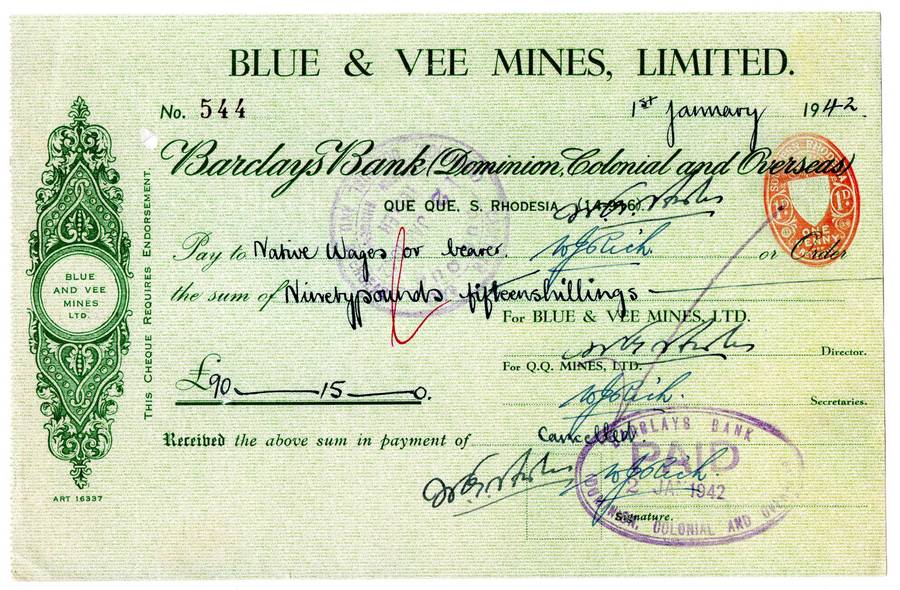 BLUE & VEE MINES, LIMITED.
No. 544
1st January 1942.
Barclays Bank (Dominion, Colonial and Overseas)
QUE QUE, S. RHODESIA (14-916)
Pay to Native Wages or bearer. or Order
the sum of Ninetypounds fifteenshillings
For BLUE & VEE MINES, LTD.
Director.
For Q.Q. MINES, LTD.
£90 — 15 — 0.
Secretaries.
Received the above sum in payment of Cancelled.
Signature.
BLUE
AND VEE
MINES
LTD.
THIS CHEQUE REQUIRES ENDORSEMENT.
ART 16337
1D. 1D.
ONE
PENNY
BARCLAYS BANK
PAID
2 JAN 1942
DOMINION, COLONIAL AND OVERSEAS